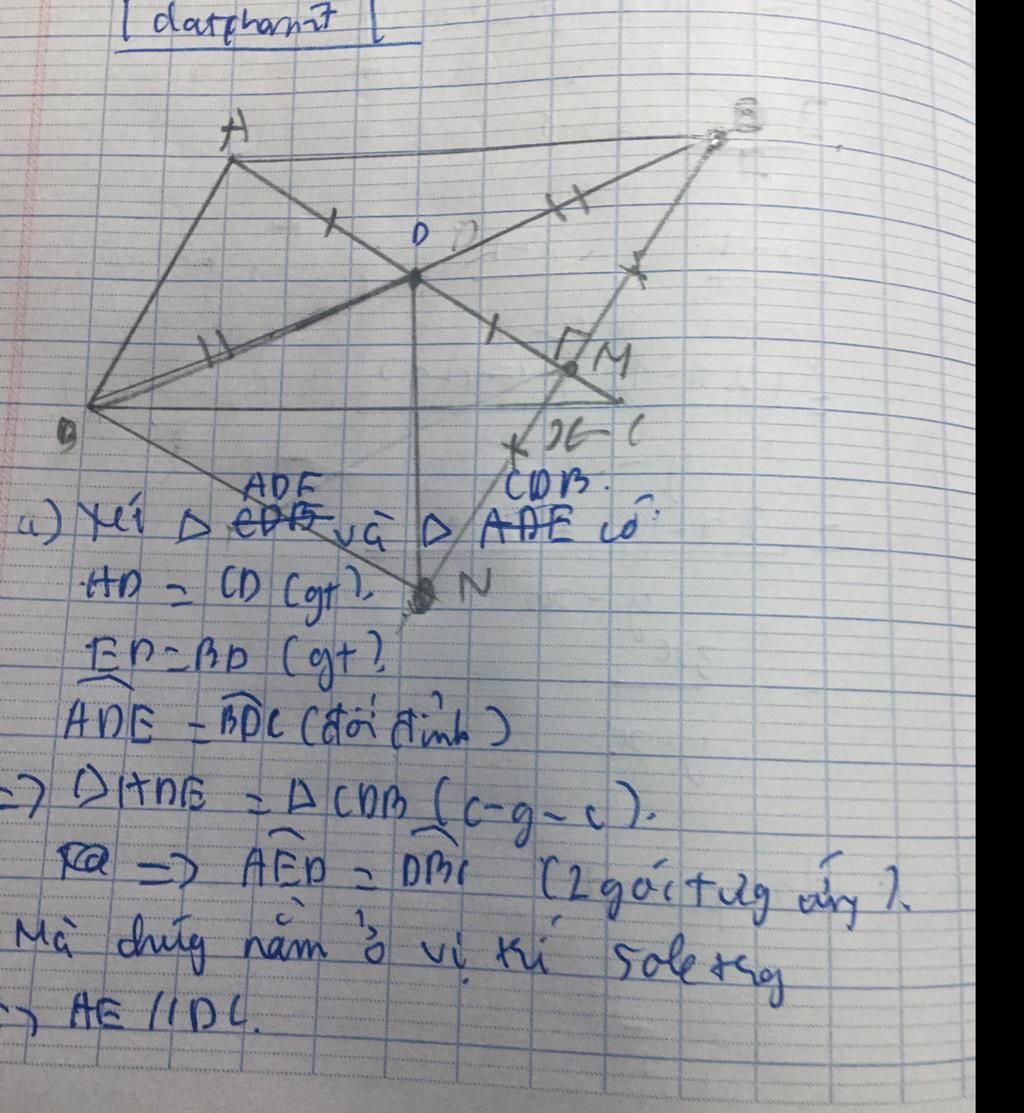 A
D
M
B
C
N
ADE CDB.
a) Xét Δ CDB và Δ ADE có:
AD = CD (gt).
ED = BD (gt)
ADE = BDC (đối đỉnh)
=> Δ ADE = Δ CDB (c-g-c).
=> AED = DBC (2 góc tứg ứng).
Mà chúg nằm ở vị trí sole trg
=> AE // DC.